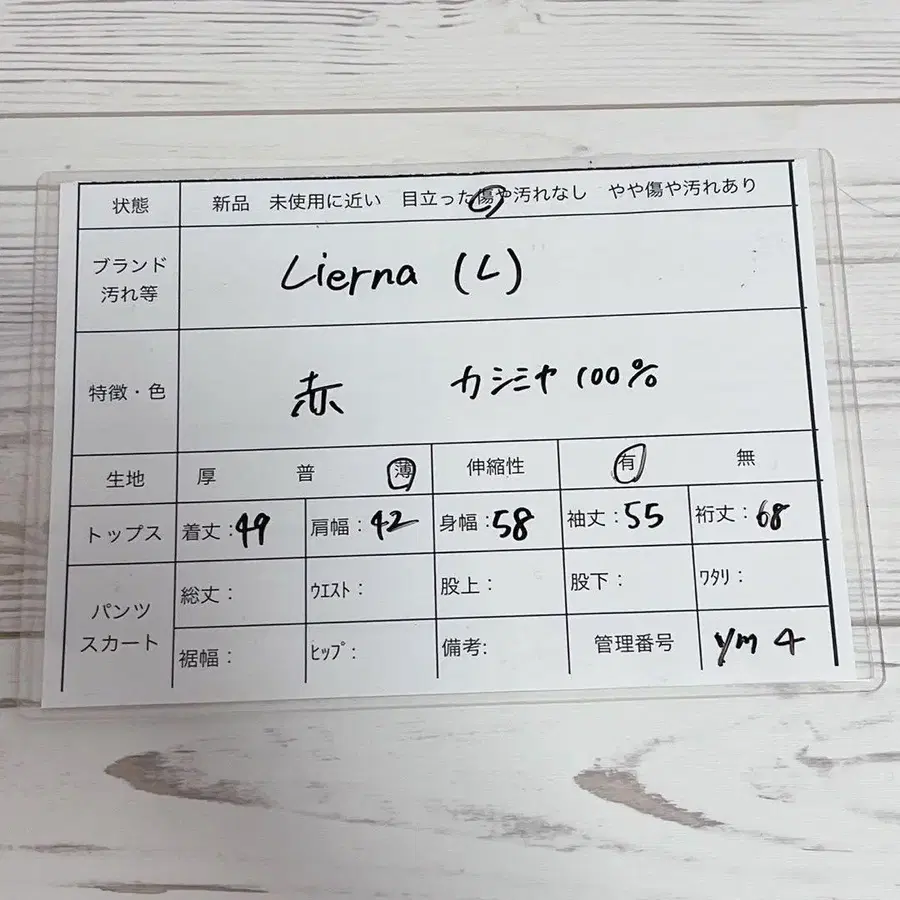 状態 新品 未使用に近い 目立った傷や汚れなし やや傷や汚れあり
ブランド
汚れ等
Lierna (L)
特徴・色 赤 カシミヤ 100%
生地 厚 普 薄 伸縮性 有 無
トップス 着丈:49 肩幅:42 身幅:58 袖丈:55 裄丈:68
パンツ
スカート
総丈: ウエスト: 股上: 股下: ワタリ:
裾幅: ヒップ: 備考: 管理番号 ym 4